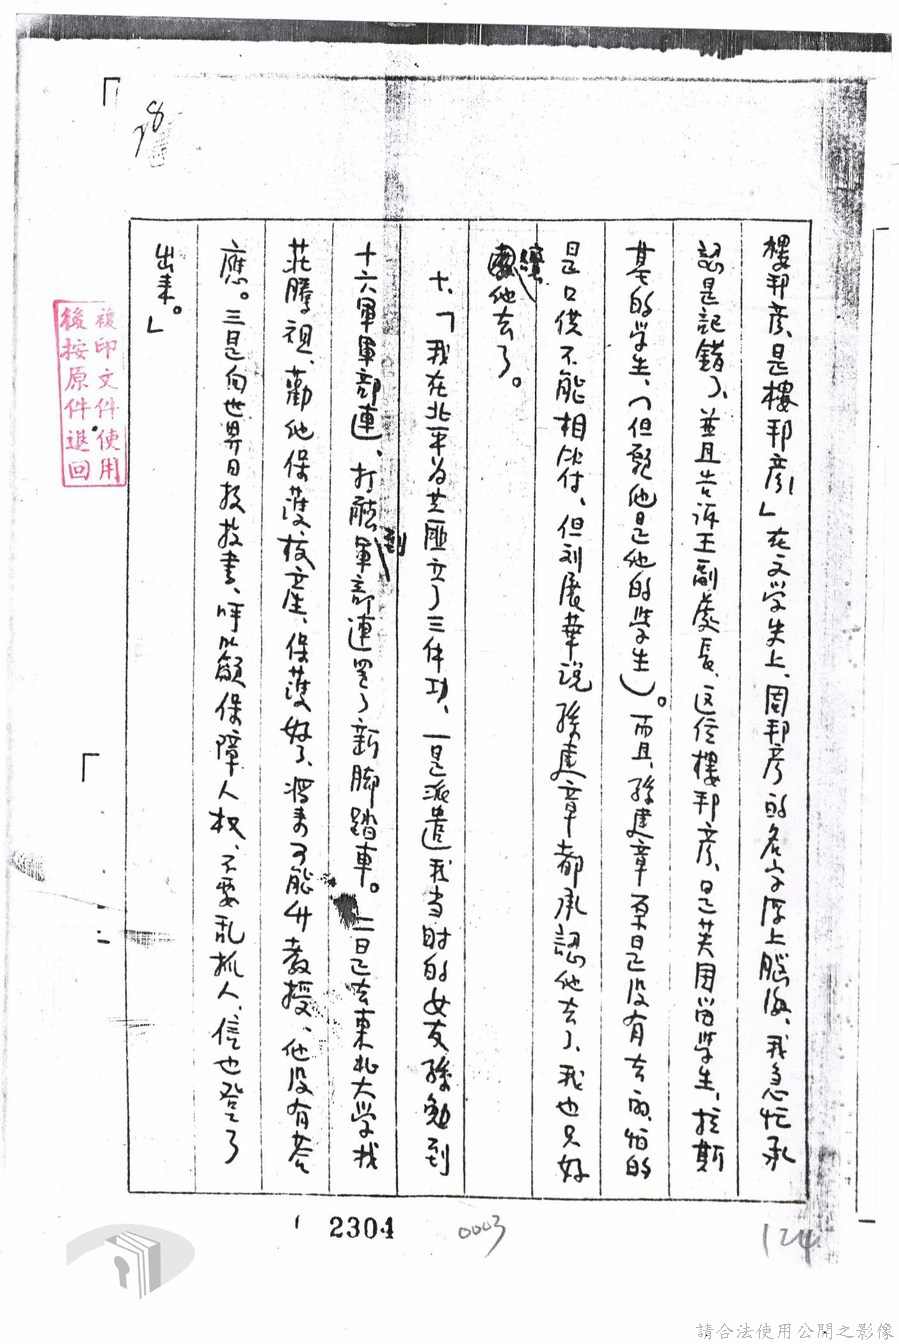 78
樓邦彥、是樓邦彥!」在文学史上、周邦彥的名字浮上腦海、我急忙承
認是記錯了、並且告诉王副處長、这位樓邦彥、是英国留学生、拉斯
基的学生、(但願他是他的学生)。而且、孫建章原是没有去的、怕的
是口供不能相符、但刘展華说孫建章都承認他去了、我也只好
讓他去了。
十、「我在北平为共匪立了三件功、一是派遣我当时的女友孫勉到
十六軍軍部連、打聽到軍部連買了新脚踏車。二是去東北大学找
莊騰祖、勸他保護校產、保護好了、將來可能升教授、他没有答
應。三是向世界日报投書、呼籲保障人权、不要乱抓人、信也登了
出来。」
複印文件使用
後按原件退回
2304
0003
124
請合法使用公開之影像